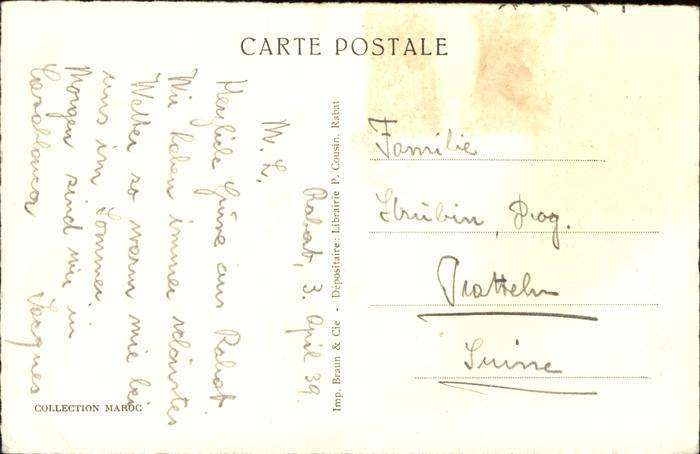 CARTE POSTALE
Rabat, 3. April 39.
M. L.
Herzliche Grüsse aus Rabat.
Wir haben immer schönstes
Wetter so warm wie bei
uns im Sommer.
Morgen sind wir in
Casablanca Jacques
Imp. Braun & Cie - Dépositaire: Librairie P. Cousin, Rabat
Familie
Strübin, Drog.
Pratteln
Suisse
COLLECTION MAROC